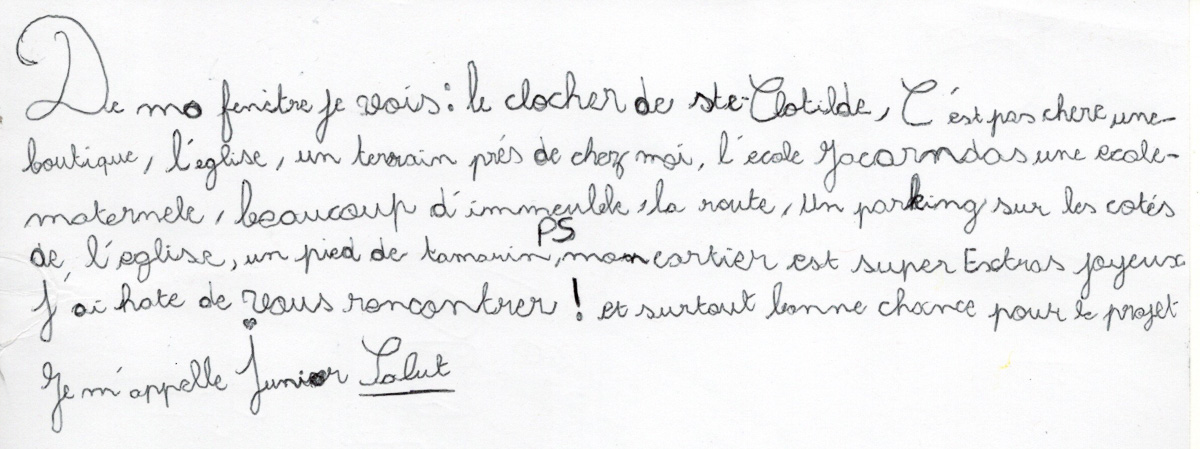 De ma fenêtre je vois : le clocher de ste-Clotilde, C'est pas chere, une
boutique, l'eglise, un terrain prés de chez moi, l'école Jacarndas une ecole-
maternele, beaucoup d'immeuble, la route, Un parking sur les cotés
de l'église, un pied de tamarin, PS mon cartier est super Extras joyeux
J'ai hate de vous roncontrer ! et surtout bonne chance pour le projet
Je m'appelle Junior Salut